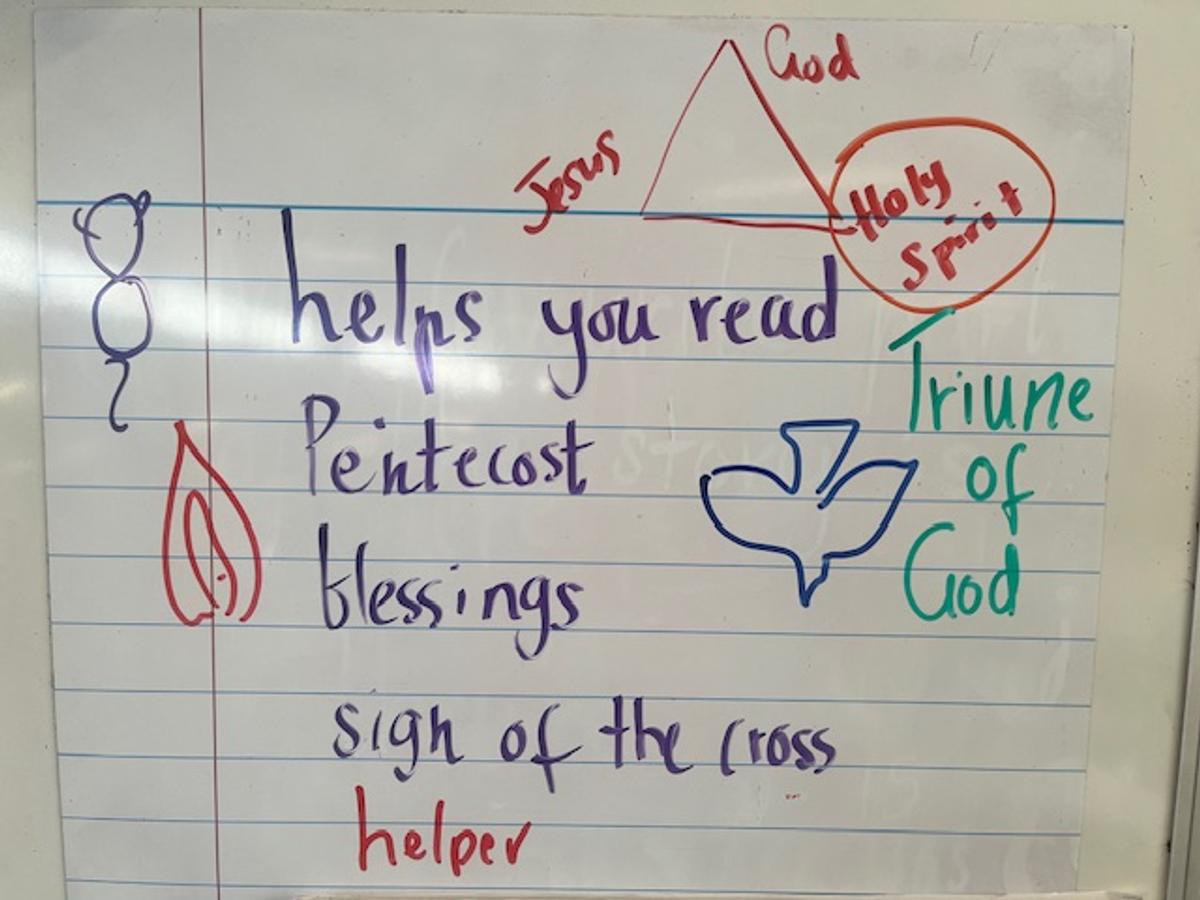 God
Jesus
Holy
Spirit
helps you read
Pentecost
blessings
sign of the cross
helper
Triune
of
God